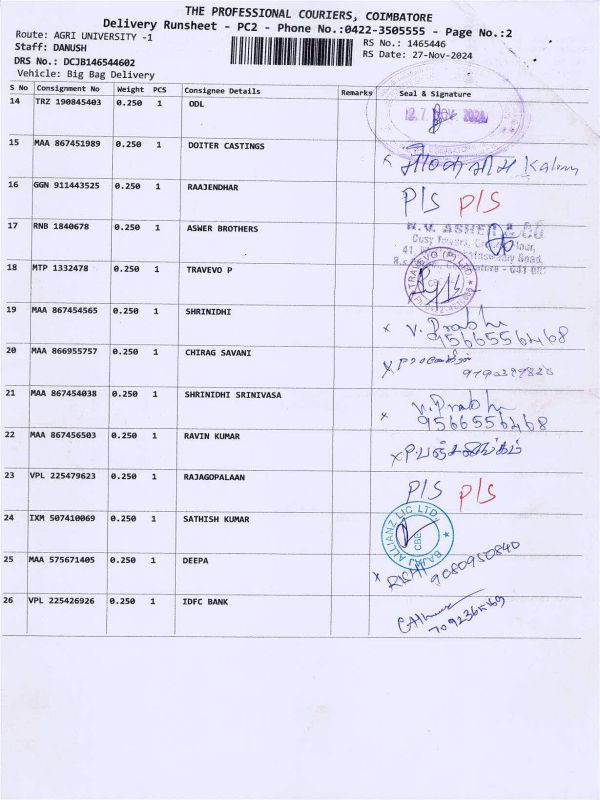 THE PROFESSIONAL COURIERS, COIMBATORE
Delivery Runsheet - PC2 - Phone No.:0422-3505555 - Page No.:2
Route: AGRI UNIVERSITY -1
RS No.: 1465446
Staff: DANUSH
RS Date: 27-Nov-2024
DRS No.: DCJB146544602
Vehicle: Big Bag Delivery
S No Consignment No Weight PCS Consignee Details Remarks Seal & Signature
14 TRZ 190845403 0.250 1 ODL
27 NOV 2024
15 MAA 867451989 0.250 1 DOITER CASTINGS
16 GGN 911443525 0.250 1 RAAJENDHAR P/S P/S
17 RNB 1840678 0.250 1 ASWER BROTHERS
N.V. ASHER & CO
18 MTP 1332478 0.250 1 TRAVEVO P
TRAVEVO (P) LTD
CBE
19 MAA 867454565 0.250 1 SHRINIDHI x V. Prabhu
9566556468
20 MAA 866955757 0.250 1 CHIRAG SAVANI
21 MAA 867454038 0.250 1 SHRINIDHI SRINIVASA x V. Prabhu
9566556468
22 MAA 867456503 0.250 1 RAVIN KUMAR
23 VPL 225479623 0.250 1 RAJAGOPALAAN P/S P/S
24 IXM 507410069 0.250 1 SATHISH KUMAR
BAJAJ ALLIANZ LIC LTD
CBE
25 MAA 575671405 0.250 1 DEEPA x RISHI 9080950840
26 VPL 225426926 0.250 1 IDFC BANK